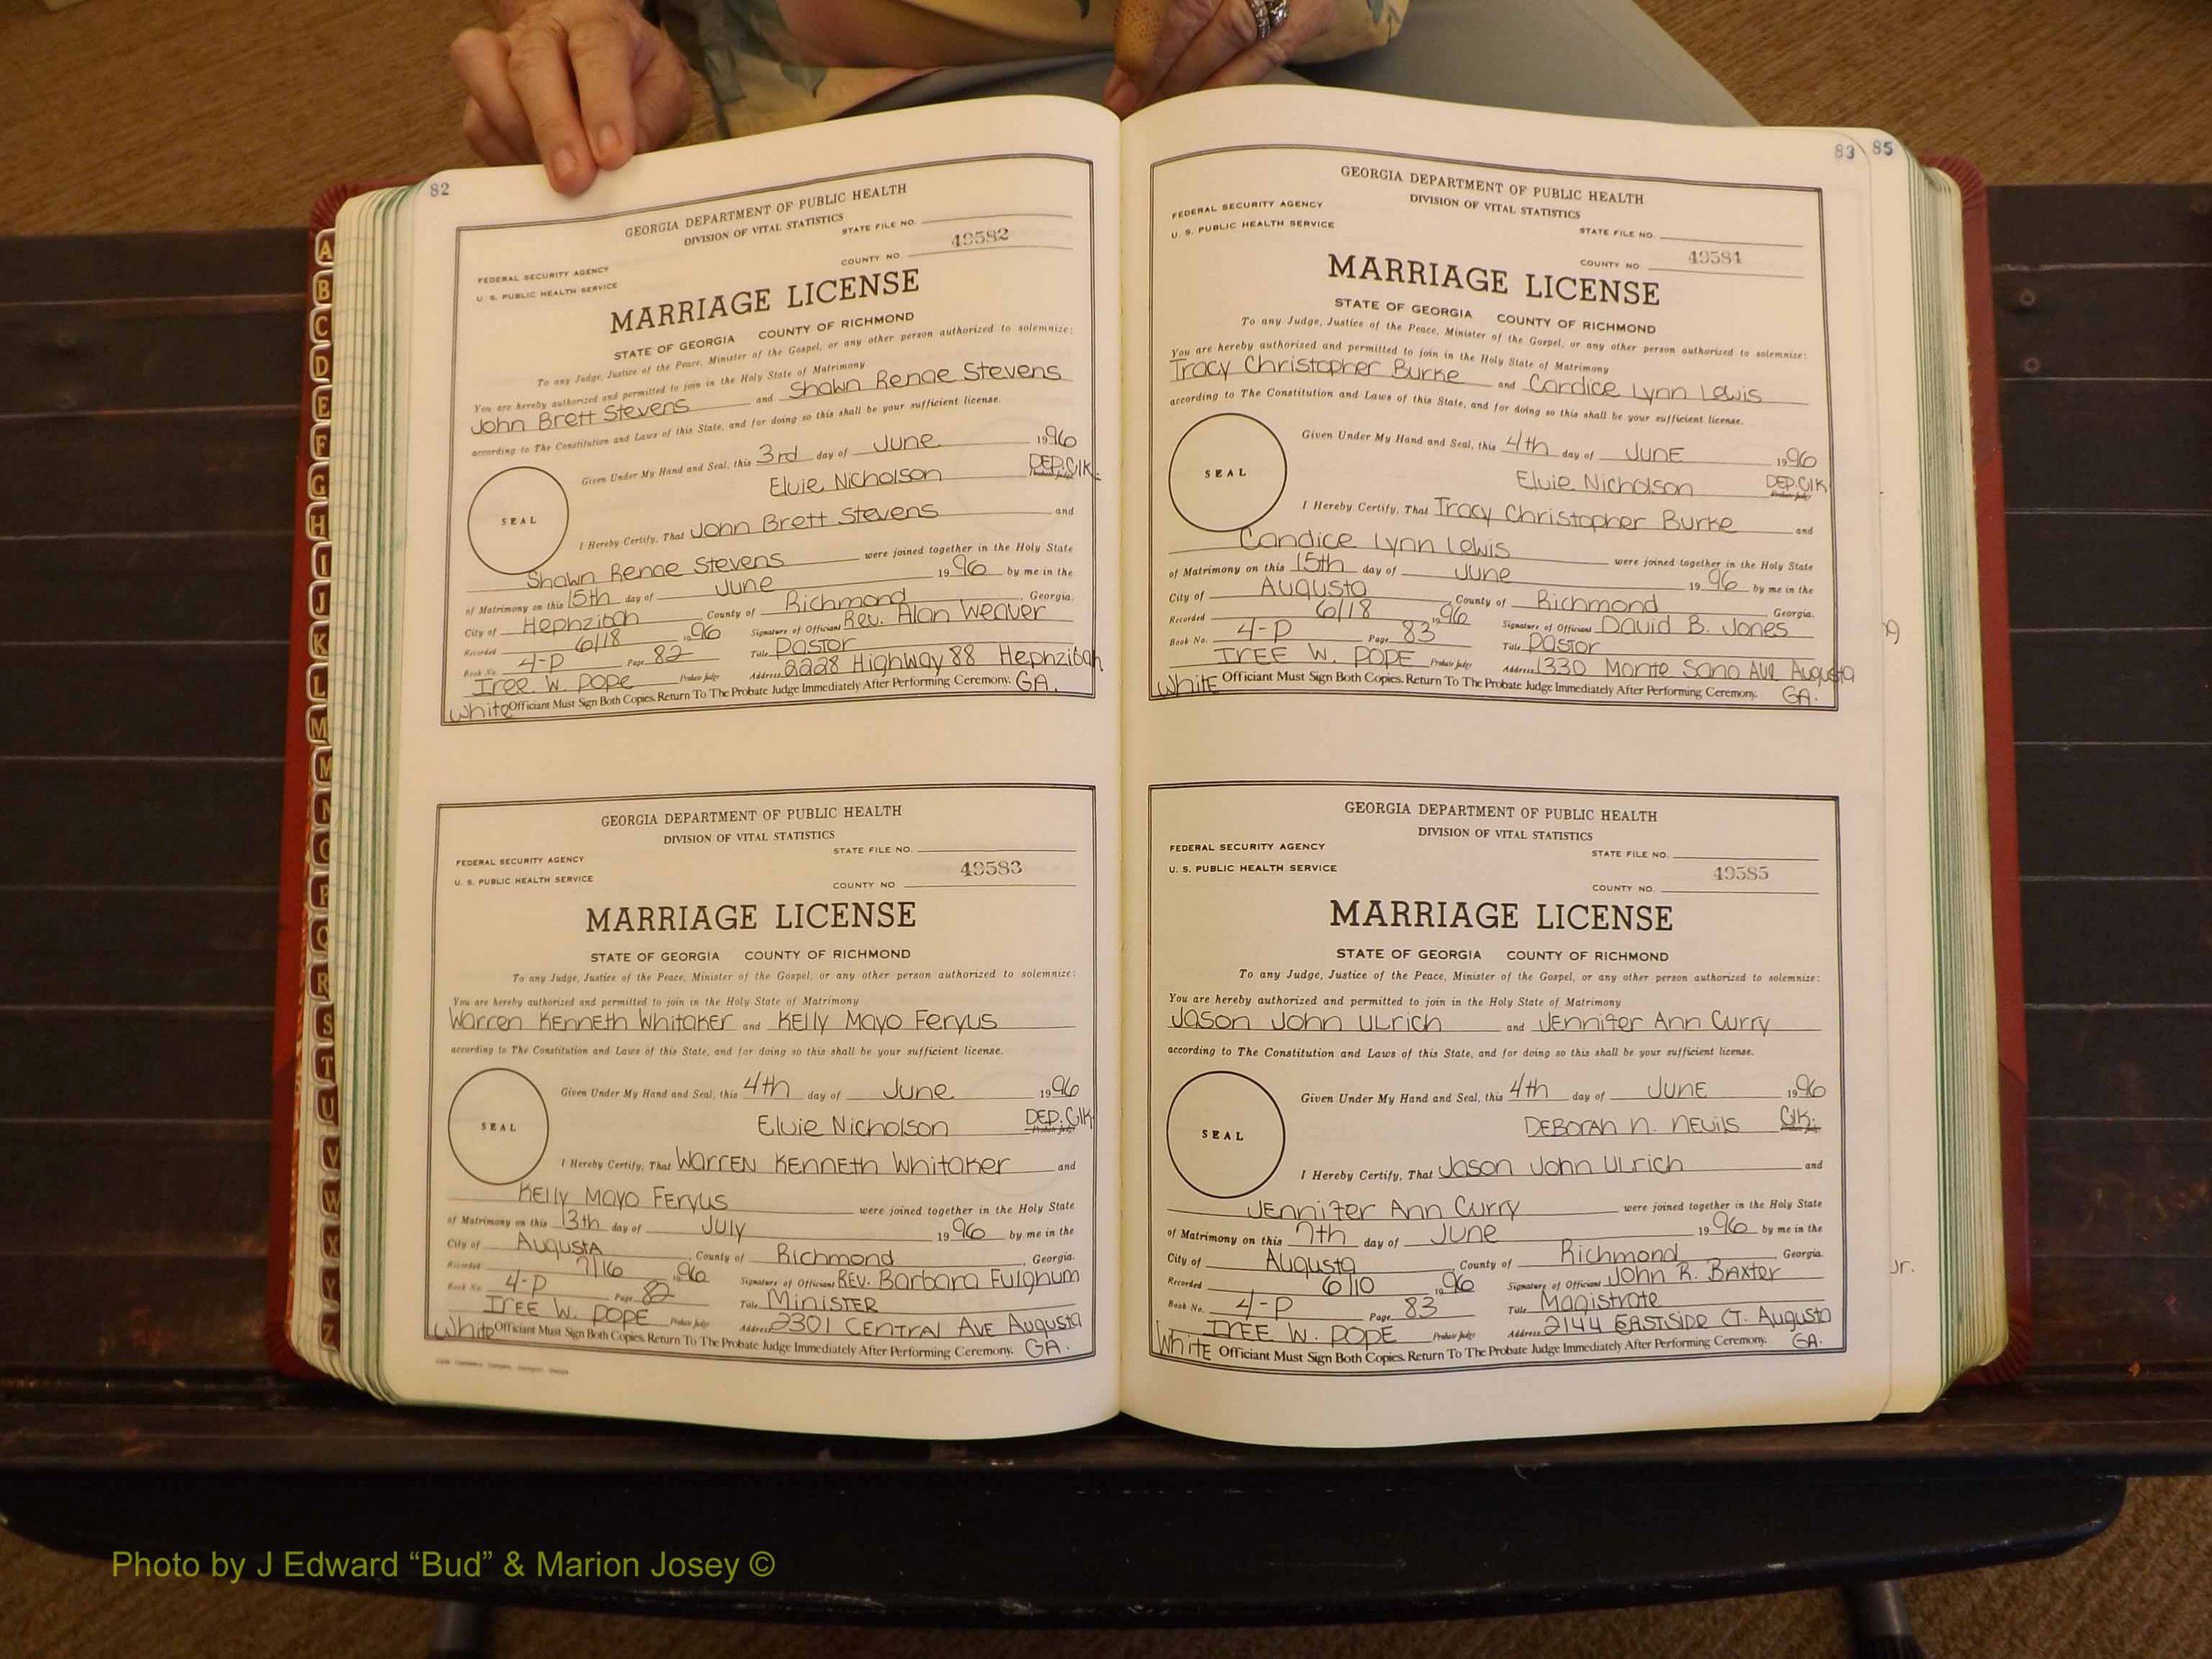 82
GEORGIA DEPARTMENT OF PUBLIC HEALTH
DIVISION OF VITAL STATISTICS
STATE FILE NO.
49582
COUNTY NO
FEDERAL SECURITY AGENCY
U. S. PUBLIC HEALTH SERVICE
MARRIAGE LICENSE
STATE OF GEORGIA COUNTY OF RICHMOND
To any Judge, Justice of the Peace, Minister of the Gospel, or any other person authorized to solemnize:
You are hereby authorized and permitted to join in the Holy State of Matrimony
John Brett Stevens and Shawn Renae Stevens
according to The Constitution and Laws of this State, and for doing so this shall be your sufficient license.
Given Under My Hand and Seal, this 3rd day of June 1996
Elvie Nicholson DEP. Clk.
SEAL
I Hereby Certify, That John Brett Stevens and
Shawn Renae Stevens were joined together in the Holy State
of Matrimony on this 15th day of June 1996 by me in the
City of Hephzibah County of Richmond, Georgia.
Recorded 6/18 1996 Signature of Officiant Rev. Alan Weaver
Book No. 4-P Page 82 Title Pastor
Iree. W. Pope Probate Judge Address 2228 Highway 88 Hephzibah
White Officiant Must Sign Both Copies. Return To The Probate Judge Immediately After Performing Ceremony. GA.
GEORGIA DEPARTMENT OF PUBLIC HEALTH
DIVISION OF VITAL STATISTICS
STATE FILE NO.
FEDERAL SECURITY AGENCY
49583
U. S. PUBLIC HEALTH SERVICE
COUNTY NO.
MARRIAGE LICENSE
STATE OF GEORGIA COUNTY OF RICHMOND
To any Judge, Justice of the Peace, Minister of the Gospel, or any other person authorized to solemnize:
You are hereby authorized and permitted to join in the Holy State of Matrimony
Warren Kenneth Whitaker and Kelly Mayo Feryus
according to The Constitution and Laws of this State, and for doing so this shall be your sufficient license.
Given Under My Hand and Seal, this 4th day of June 1996
Elvie Nicholson DEP. Clk.
SEAL
I Hereby Certify, That Warren Kenneth Whitaker and
Kelly Mayo Feryus were joined together in the Holy State
of Matrimony on this 13th day of July 1996 by me in the
City of Augusta County of Richmond, Georgia.
Recorded 7/16 1996 Signature of Officiant Rev. Barbara Fulghum
Book No. 4-P Page 82 Title Minister
Iree W. Pope Probate Judge Address 2301 Central Ave Augusta
White Officiant Must Sign Both Copies. Return To The Probate Judge Immediately After Performing Ceremony. GA.
83 85
GEORGIA DEPARTMENT OF PUBLIC HEALTH
DIVISION OF VITAL STATISTICS
FEDERAL SECURITY AGENCY
U. S. PUBLIC HEALTH SERVICE
STATE FILE NO.
49584
COUNTY NO
MARRIAGE LICENSE
STATE OF GEORGIA COUNTY OF RICHMOND
To any Judge, Justice of the Peace, Minister of the Gospel, or any other person authorized to solemnize:
You are hereby authorized and permitted to join in the Holy State of Matrimony
Tracy Christopher Burke and Candice Lynn Lewis
according to The Constitution and Laws of this State, and for doing so this shall be your sufficient license.
Given Under My Hand and Seal, this 4th day of June 1996
Elvie Nicholson DEP. Clk
SEAL
I Hereby Certify, That Tracy Christopher Burke and
Candice Lynn Lewis were joined together in the Holy State
of Matrimony on this 15th day of June 1996 by me in the
City of Augusta County of Richmond Georgia.
Recorded 6/18 1996 Signature of Officiant David B. Jones
Book No. 4-P Page 83 Title Pastor
Iree W. Pope Probate Judge Address 1330 Monte Sano Ave Augusta
White Officiant Must Sign Both Copies. Return To The Probate Judge Immediately After Performing Ceremony. GA.
GEORGIA DEPARTMENT OF PUBLIC HEALTH
DIVISION OF VITAL STATISTICS
FEDERAL SECURITY AGENCY
STATE FILE NO.
U. S. PUBLIC HEALTH SERVICE
49585
COUNTY NO
MARRIAGE LICENSE
STATE OF GEORGIA COUNTY OF RICHMOND
To any Judge, Justice of the Peace, Minister of the Gospel, or any other person authorized to solemnize:
You are hereby authorized and permitted to join in the Holy State of Matrimony
Jason John Ulrich and Jennifer Ann Curry
according to The Constitution and Laws of this State, and for doing so this shall be your sufficient license.
Given Under My Hand and Seal, this 4th day of June 1996
Deborah N. Nevils Clk.
SEAL
I Hereby Certify, That Jason John Ulrich and
Jennifer Ann Curry were joined together in the Holy State
of Matrimony on this 7th day of June 1996 by me in the
City of Augusta County of Richmond, Georgia.
Recorded 6/10 1996 Signature of Officiant John R. Baxter
Book No. 4-P Page 83 Title Magistrate
Iree W. Pope Probate Judge Address 2144 Eastside Ct. Augusta
White Officiant Must Sign Both Copies. Return To The Probate Judge Immediately After Performing Ceremony. GA.
Jr.
A
B
C
D
E
F
G
H
I
J
K
L
M
M
N
O
P
Q
R
S
T
U
V
W
X
Y
Z
Photo by J Edward “Bud” & Marion Josey ©